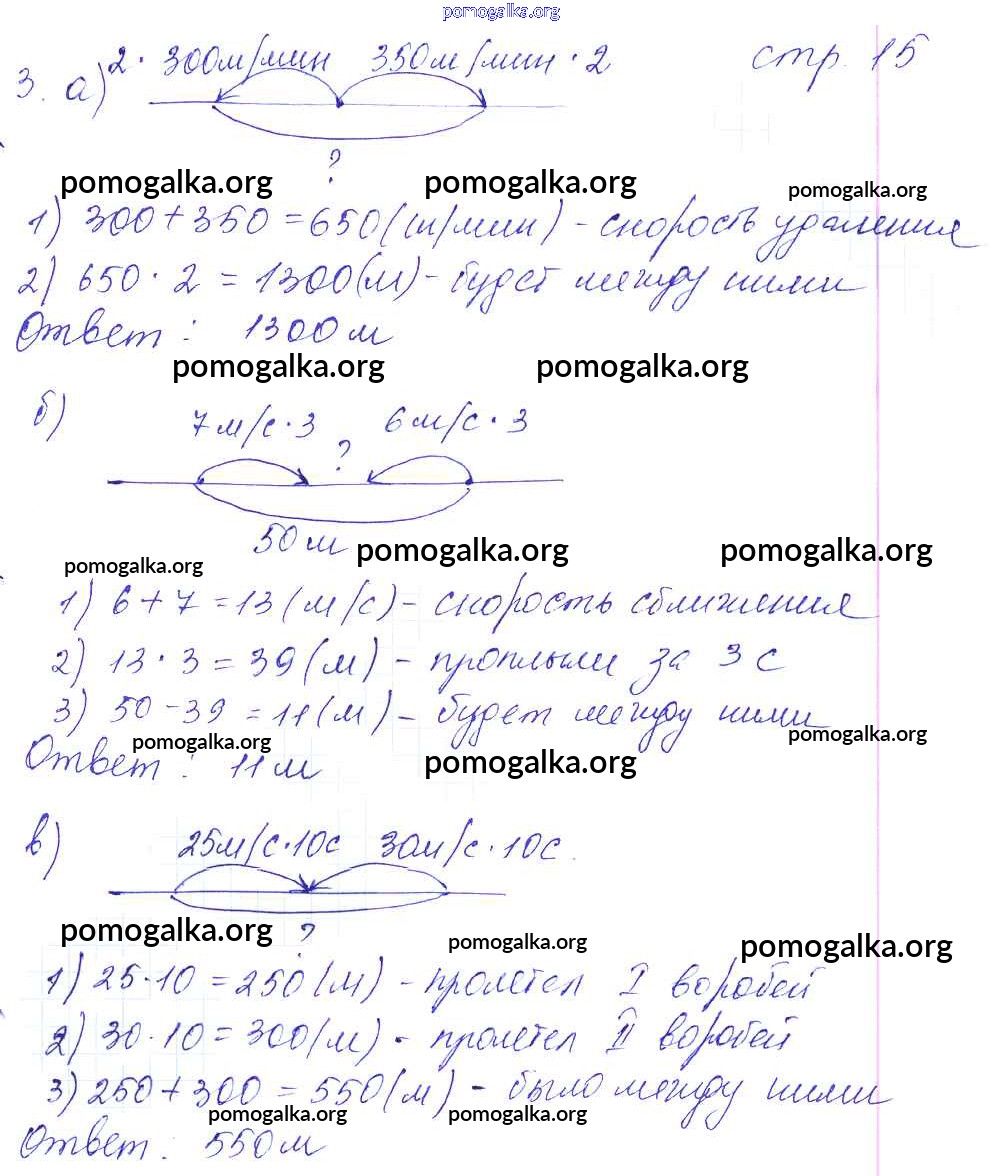 pomogalka.org
стр. 15
3. а) 2 · 300м/мин 350м/мин · 2
?
pomogalka.org pomogalka.org pomogalka.org
1) 300 + 350 = 650 (м/мин) - скорость удаления
2) 650 · 2 = 1300 (м) - будет между ними
Ответ : 1300 м
pomogalka.org pomogalka.org
б) 7м/с · 3 6м/с · 3
?
50 м pomogalka.org pomogalka.org
pomogalka.org
1) 6 + 7 = 13 (м/с) - скорость сближения
2) 13 · 3 = 39 (м) - проплыли за 3 с
3) 50 - 39 = 11 (м) - будет между ними
pomogalka.org pomogalka.org
Ответ : 11 м pomogalka.org
в) 25м/с · 10с 30м/с · 10с.
pomogalka.org ? pomogalka.org pomogalka.org
1) 25 · 10 = 250 (м) - пролетел I воробей
2) 30 · 10 = 300 (м) - пролетел II воробей
3) 250 + 300 = 550 (м) - было между ними
pomogalka.org pomogalka.org
Ответ : 550 м